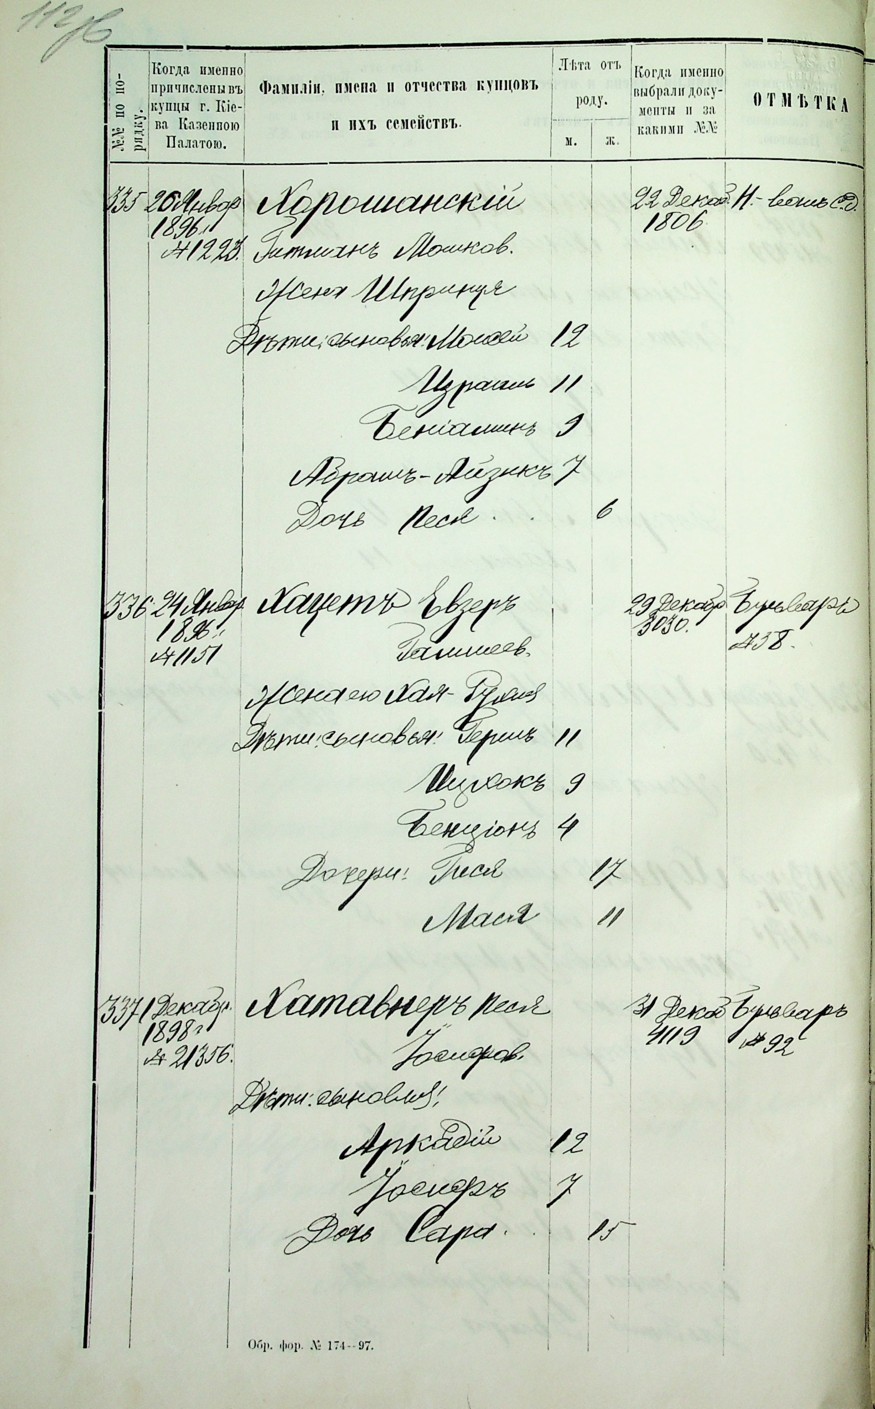 112 об
№№ по по-
рядку.
Когда именно
причислены въ
купцы г. Кіе-
ва Казенною
Палатою.
Фамиліи, имена и отчества купцовъ
и ихъ семействъ.
Лѣта отъ
роду.
м. ж.
Когда именно
выбрали доку-
менты и за
какими №№
ОТМѢТКА
335 26 Январ Хорошанскій 22 Декаб
1896 г. 1806
№ 1223. Гитманъ Мошков.
Жена Шпринця
Дѣти: сыновья: Мойсей 12
Израиль 11
Беніаминъ 9
Абрамъ-Айзикъ 7
Дочь Песя 6
336 24 Январ Хацетъ Евзеръ 29 Декабр Бульваръ
1896 г. 3030. № 58.
№ 1151
Жена его Хая-
Дѣти: сыновья: Гершъ 11
Ицхокъ 9
Бенціонъ 4
Дочери: Гися 17
Мася 11
337 1 Декабр. Хатавнеръ Песя 31 Декаб Бульваръ
1898 г 4119 № 92
№ 21356. Іосифов.
Дѣти: сыновья:
Аркадій 12
Іосифъ 7
Дочь Сара 15
Обр. фор. № 174—97.